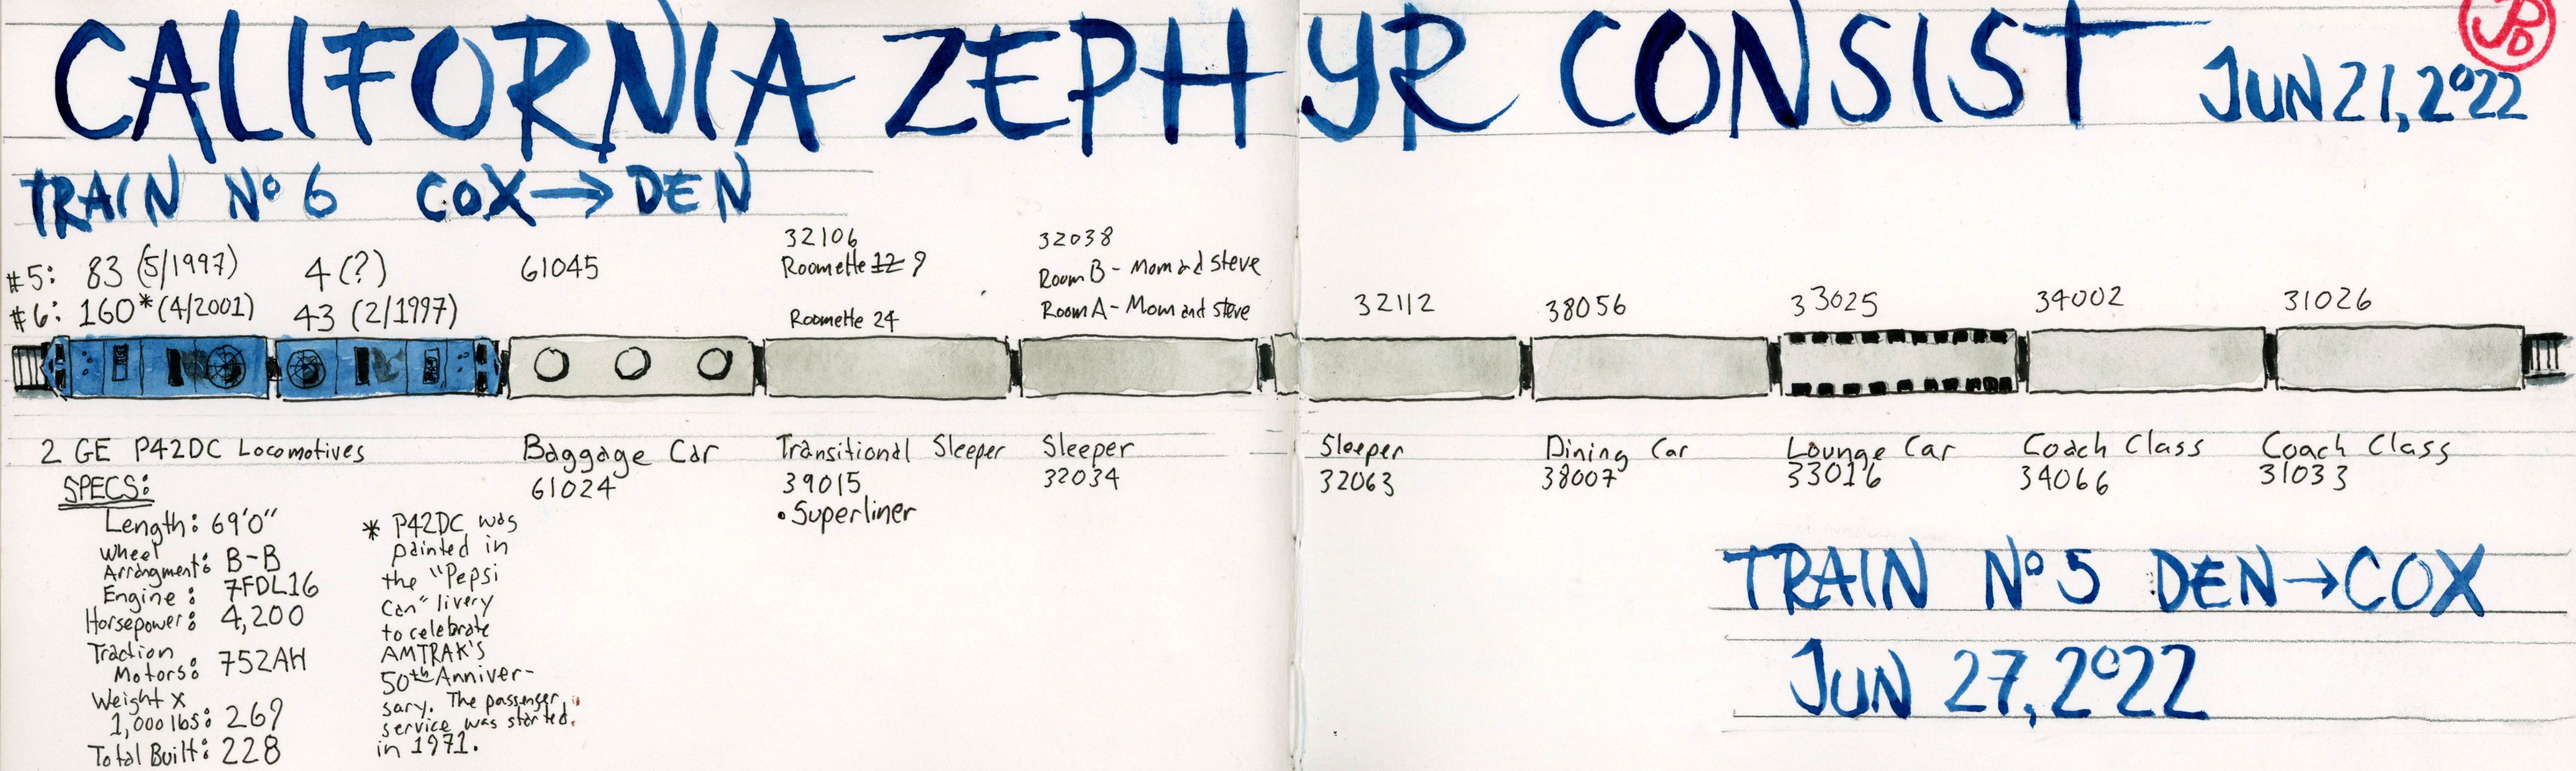 CALIFORNIA ZEPHYR CONSIST JUN 21, 2022
JPD
TRAIN Nº 6 COX→DEN
#5: 83 (5/1997) 4 (?) 61045
32106
Roomette 12 9
32038
Room B - Mom and Steve
#6: 160* (4/2001) 43 (2/1997)
Roomette 24
Room A - Mom and Steve
32112 38056 33025 34002 31026
2 GE P42DC Locomotives
Baggage Car
61024
Transitional Sleeper
39015
• Superliner
Sleeper
32034
Sleeper
32063
Dining Car
38007
Lounge Car
33016
Coach Class
34066
Coach Class
31033
SPECS:
Length: 69'0"
Wheel
Arrangment: B-B
Engine: 7FDL16
Horsepower: 4,200
Traction
Motors: 752AH
Weight x
1,000 lbs: 269
Total Built: 228
* P42DC was
painted in
the "Pepsi
Can" livery
to celebrate
AMTRAK'S
50th Anniver-
sary. The passenger
service was started
in 1971.
TRAIN Nº 5 DEN→COX
JUN 27, 2022